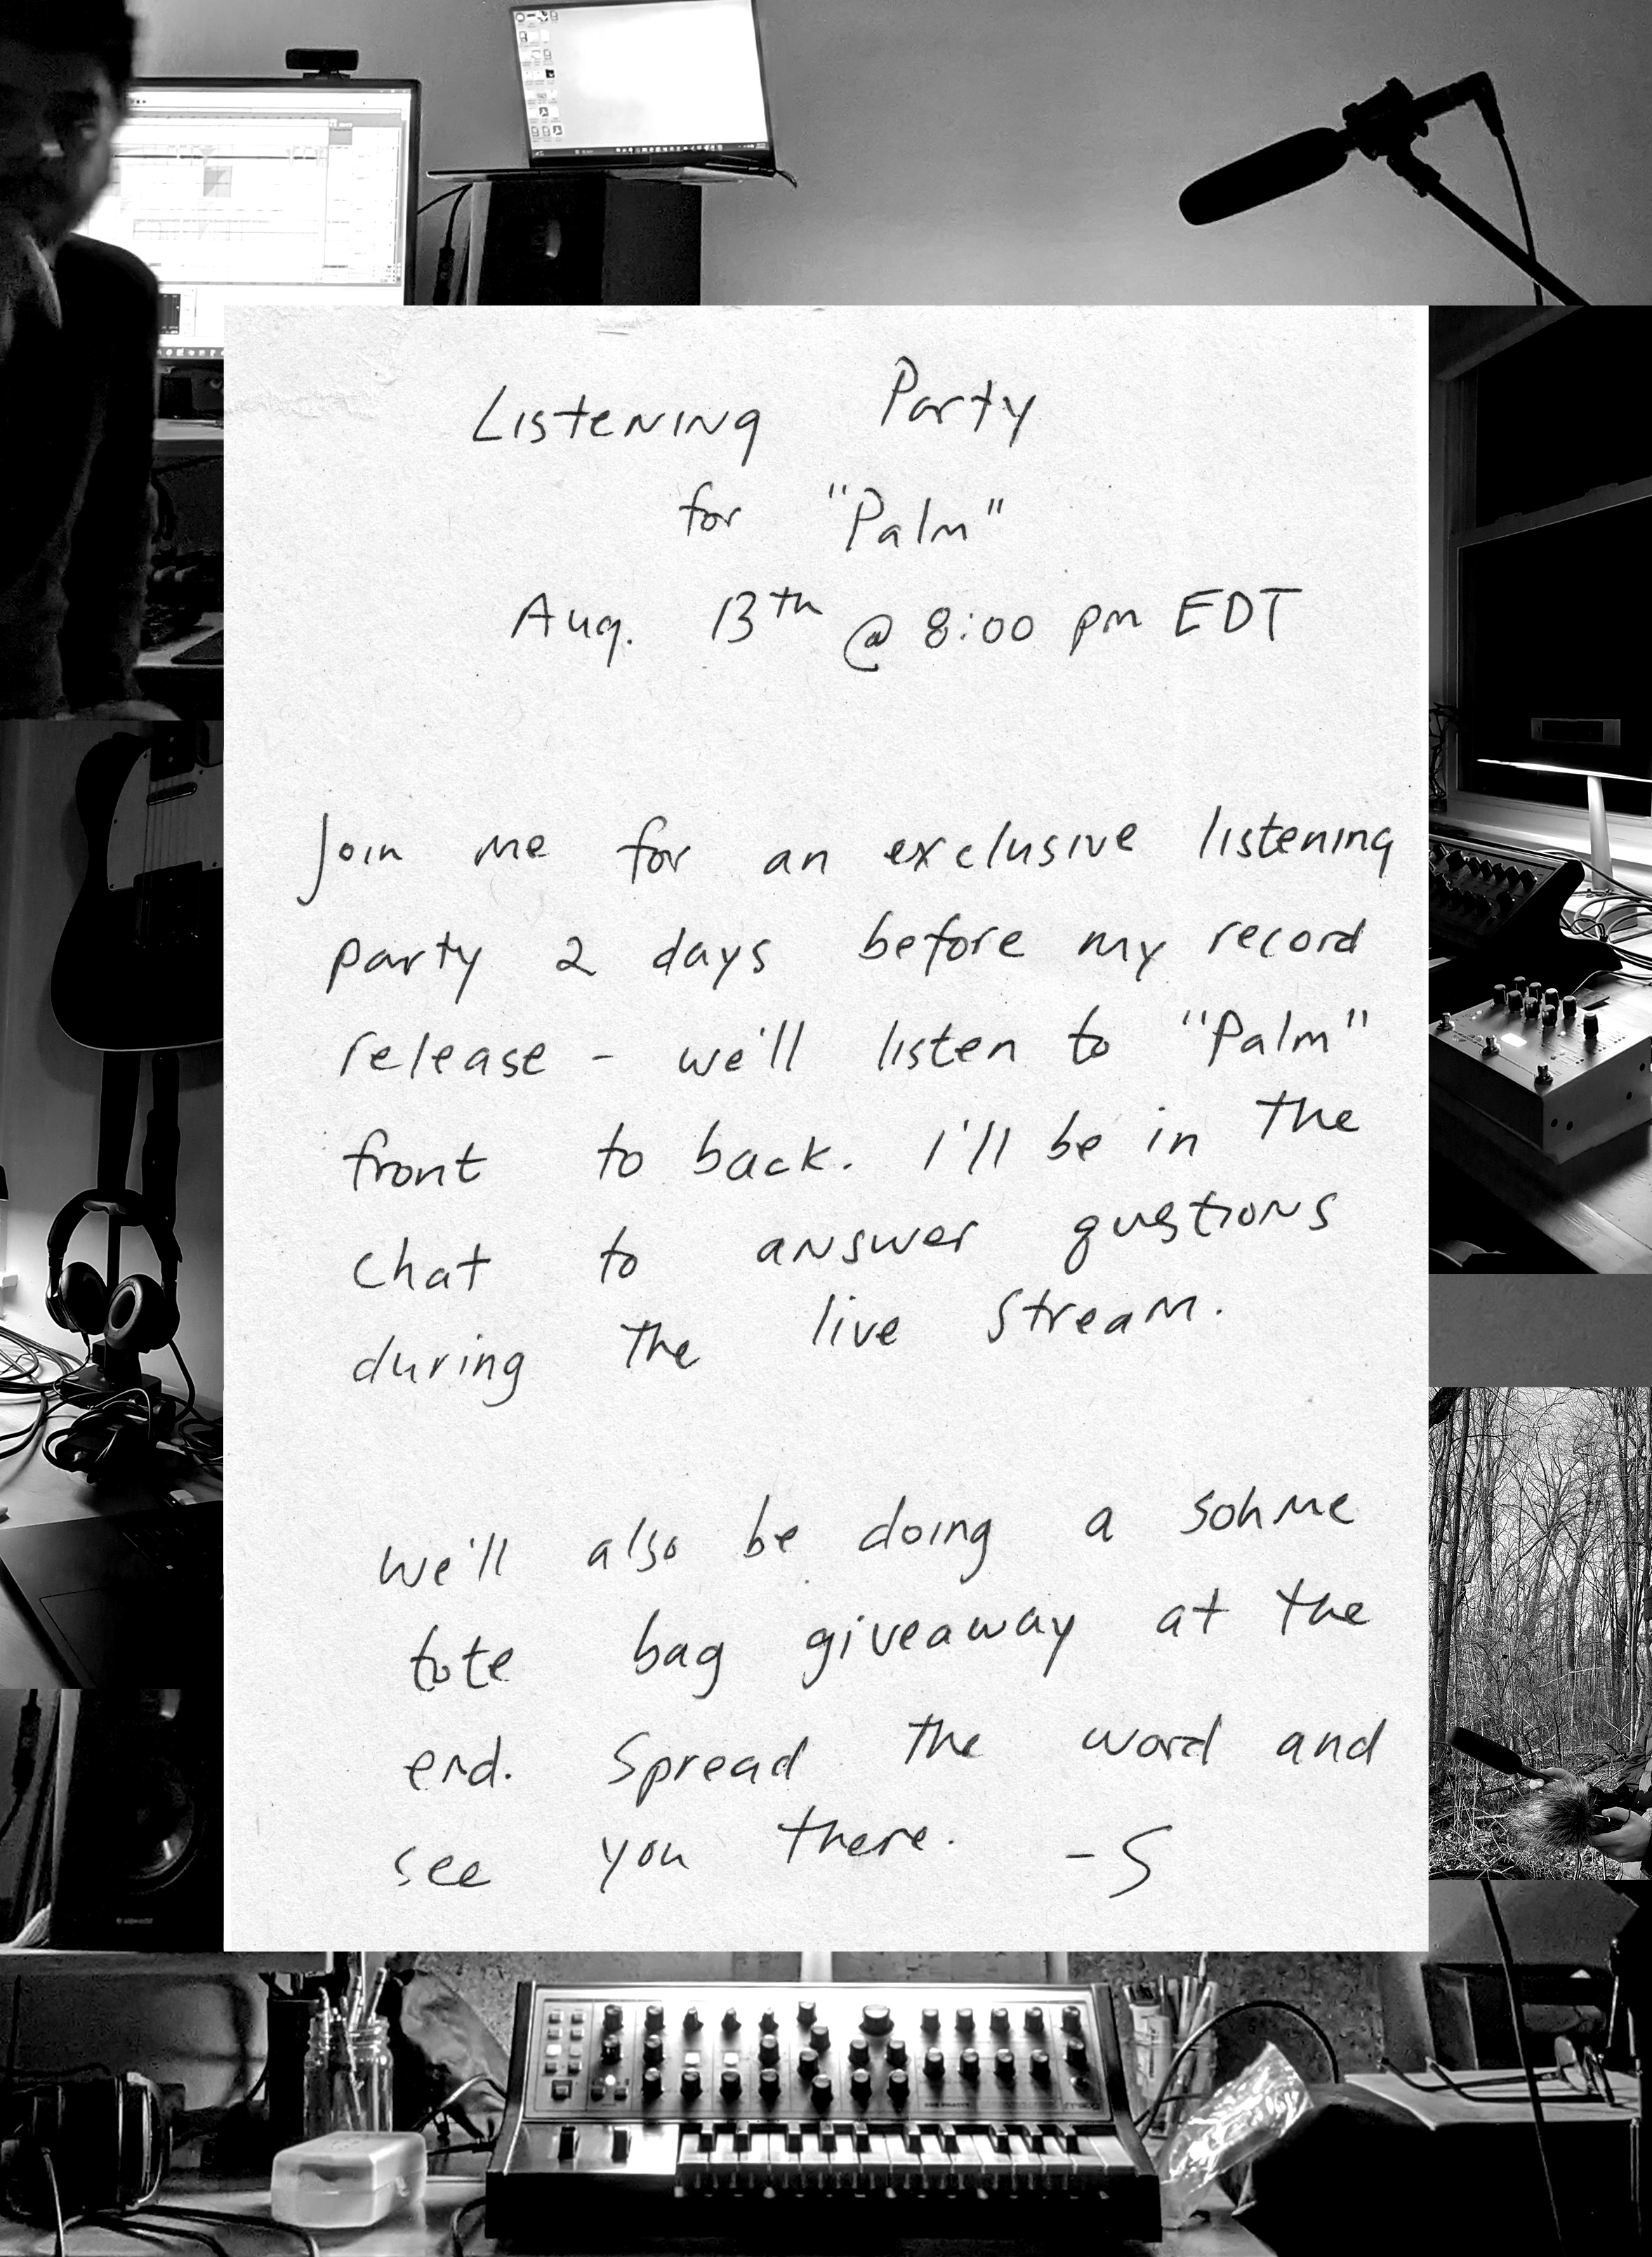 Listening Party
for "Palm"
Aug. 13th @ 8:00 pm EDT
Join me for an exclusive listening
party 2 days before my record
release - we'll listen to "Palm"
front to back. I'll be in the
chat to answer qustions
during the live stream.
we'll also be doing a sohme
tote bag giveaway at the
end. Spread the word and
see you there. -S